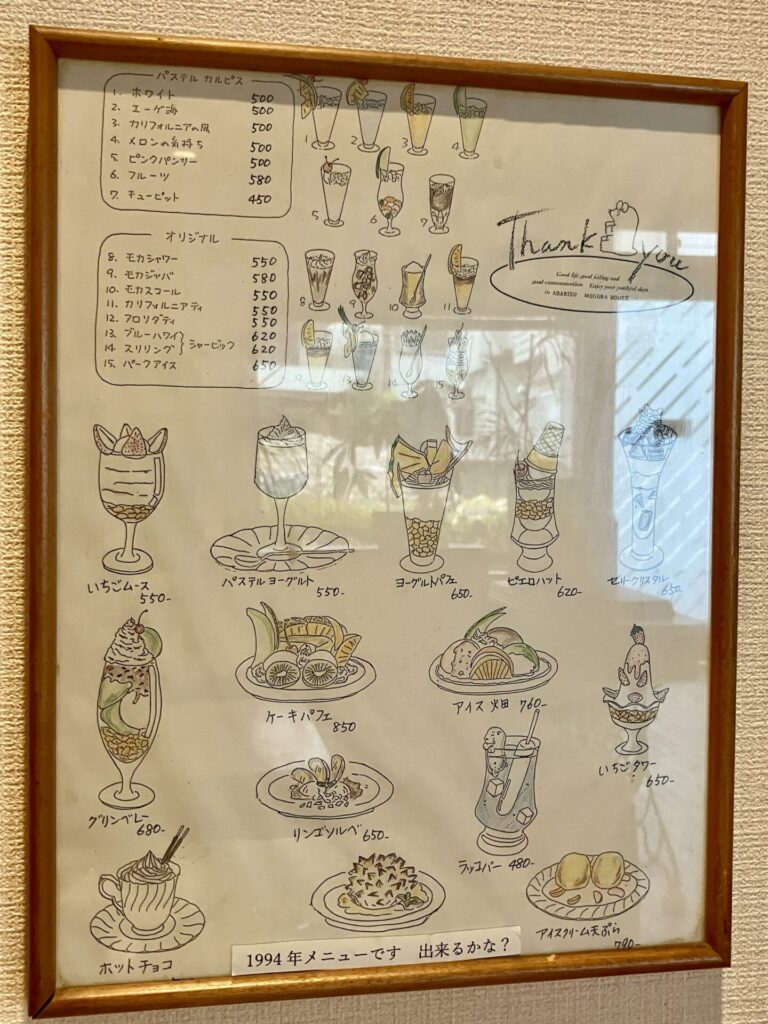 パステル カルピス
1. ホワイト 500
2. エーゲ海 500
3. カリフォルニアの風 500
4. メロンの気持ち 500
5. ピンクパンサー 500
6. フルーツ 580
7. キューピット 450
1 2 3 4
5 6 7
オリジナル
8. モカシャワー 550
9. モカジャバ 580
10. モカスコール 550
11. カリフォルニアティ 550
12. フロリダティ 550
13. ブルーハワイ 620
14. スリリング シャービック 620
15. パークアイス 650
8 9 10 11
12 13 14 15
Thank you
Good life, good feeling and
good communication. Enjoy your youthful days
in ABABISU MOGURA HOUSE
いちごムース
550-
パステルヨーグルト
550-
ヨーグルトパフェ
650-
ピエロハット
620-
ゼリークリスタル
650-
ケーキパフェ
850
アイス畑 760-
いちごタワー
650-
グリンベレー
680-
リンゴソルベ 650-
ラッコバー 480-
ホットチョコ
アイスクリーム天ぷら
790-
1994年メニューです 出来るかな?